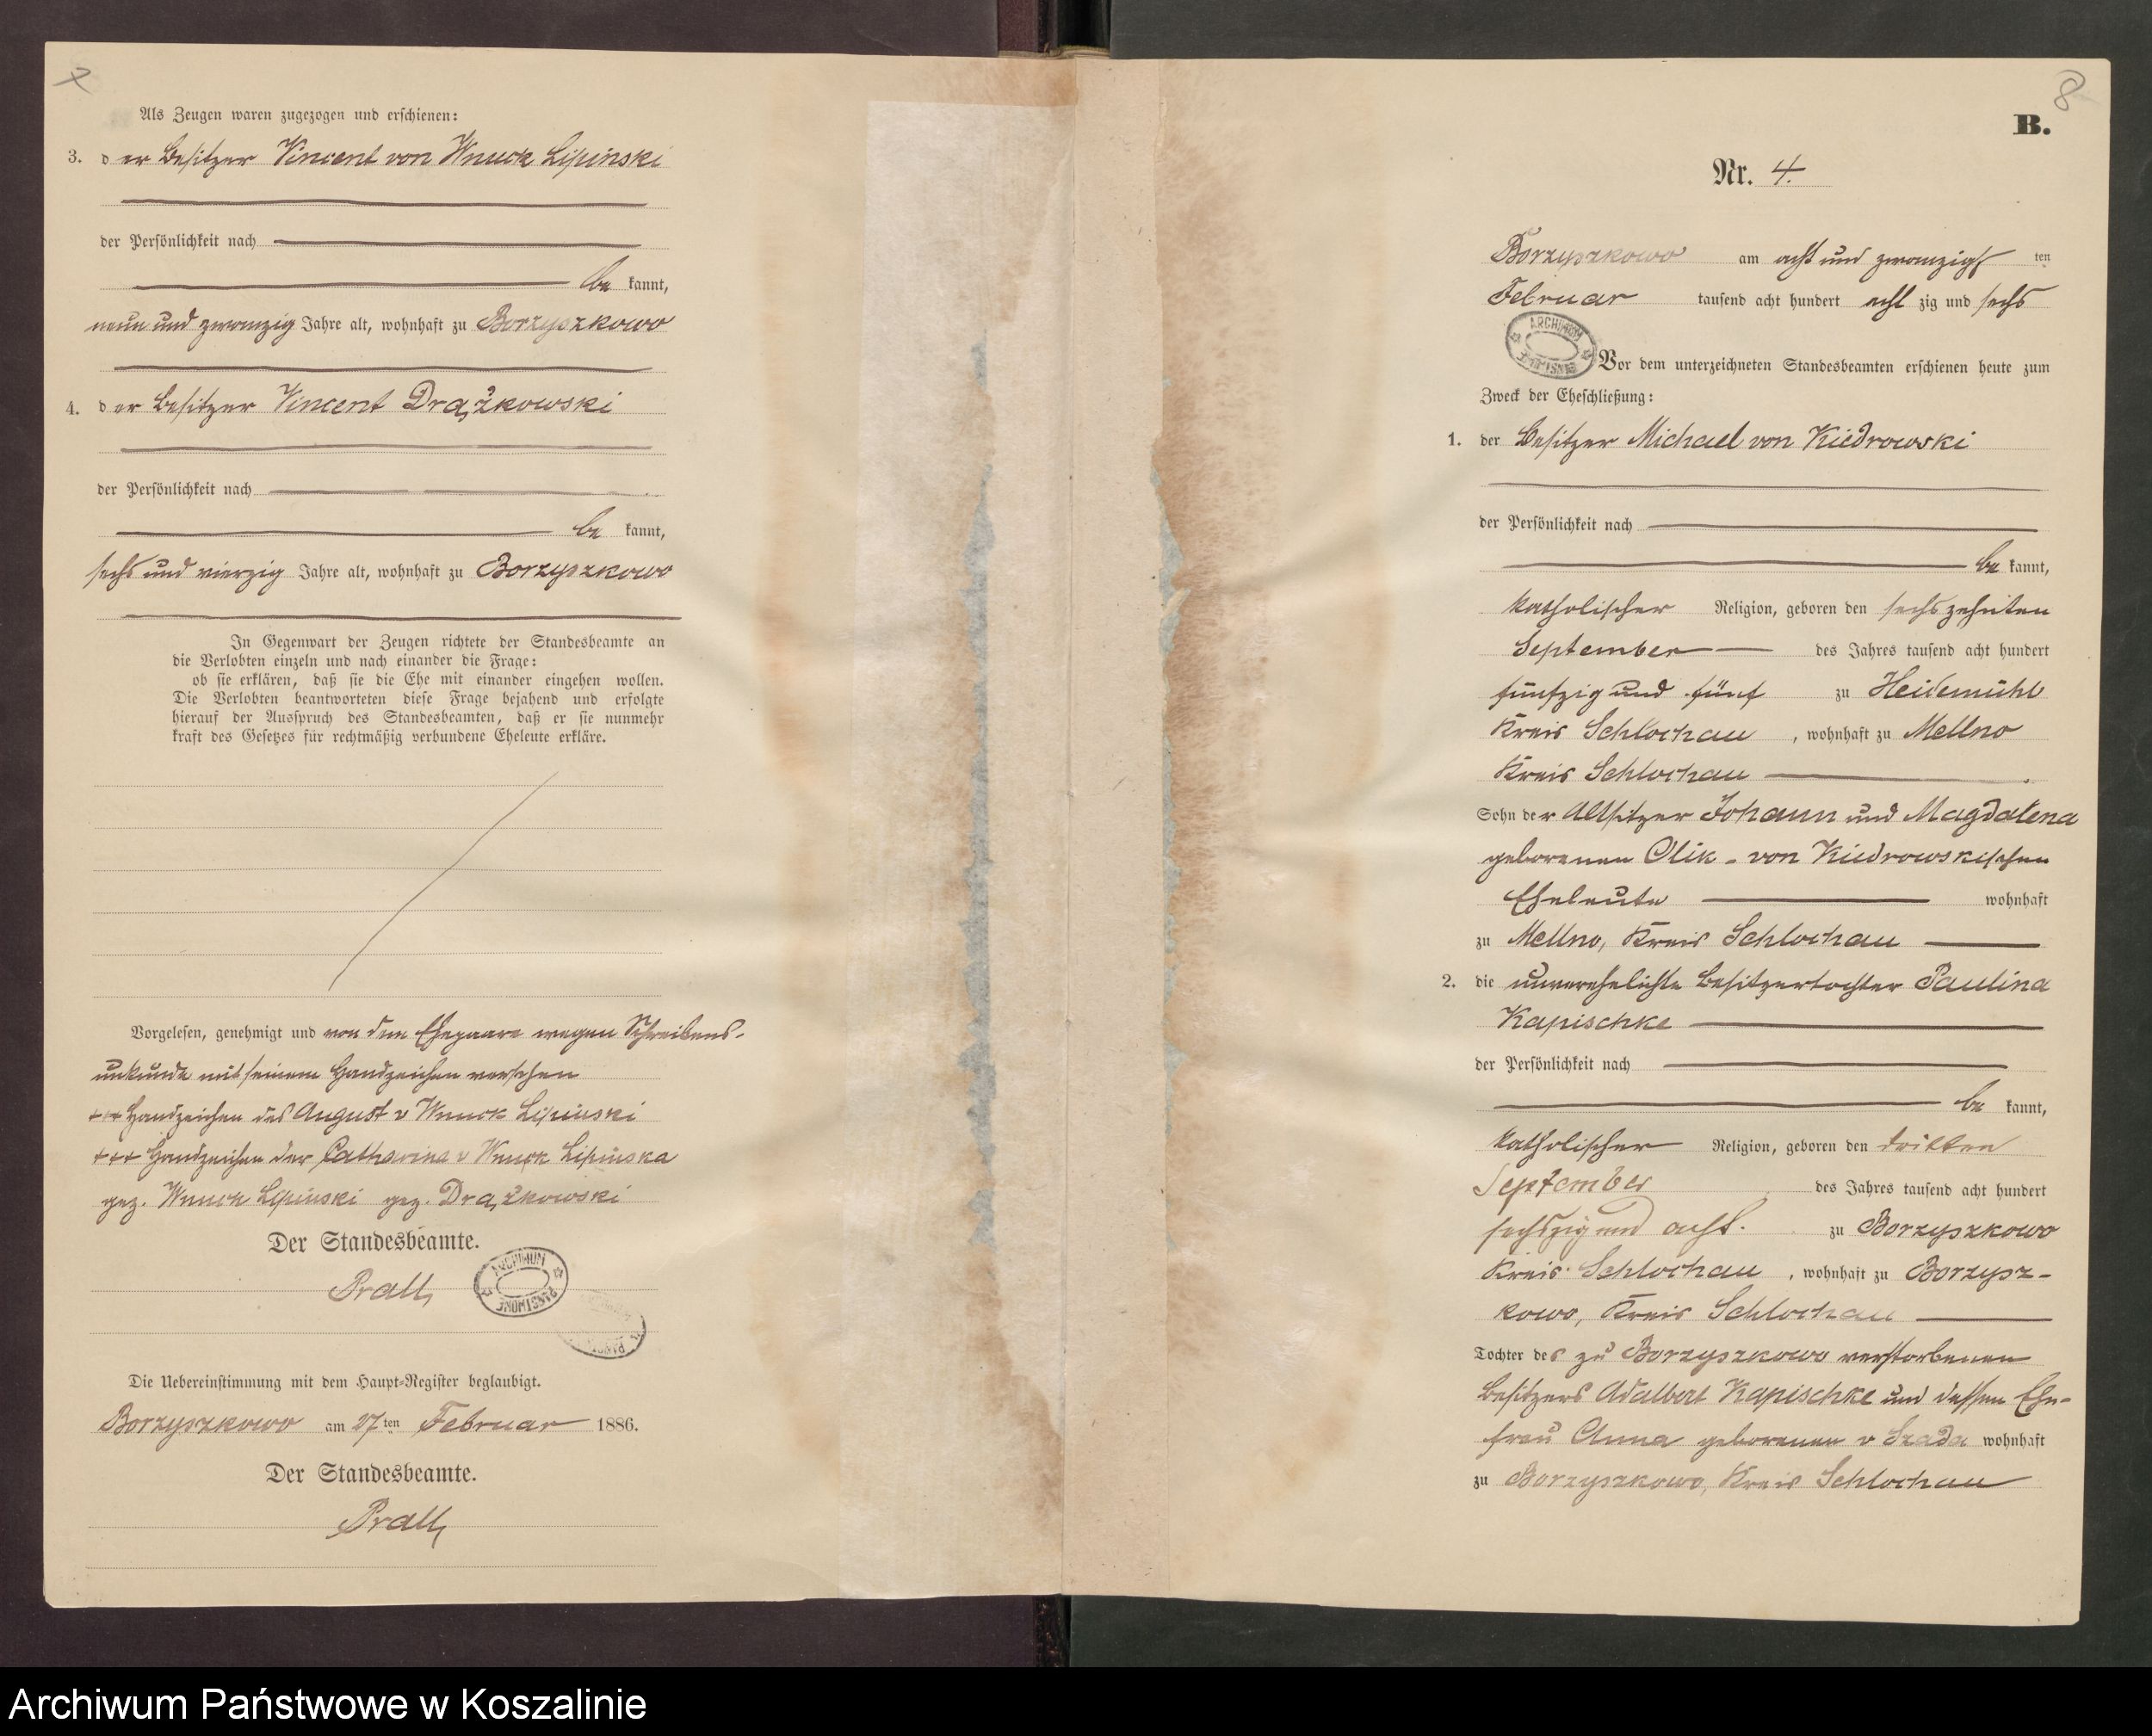 Als Zeugen waren zugezogen und erschienen:
3. der Besitzer Vincent von Wnuck Lipinski
der Persönlichkeit nach
be kannt,
neun und zwanzig Jahre alt, wohnhaft zu Borzyszkowo
4. der Besitzer Vincent Drążkowski
der Persönlichkeit nach
be kannt,
sechs und vierzig Jahre alt, wohnhaft zu Borzyszkowo
In Gegenwart der Zeugen richtete der Standesbeamte an
die Verlobten einzeln und nach einander die Frage:
ob sie erklären, daß sie die Ehe mit einander eingehen wollen.
Die Verlobten beantworteten diese Frage bejahend und erfolgte
hierauf der Ausspruch des Standesbeamten, daß er sie nunmehr
kraft des Gesetzes für rechtmäßig verbundene Eheleute erkläre.
Vorgelesen, genehmigt und von dem Ehepaare wegen Schreibens-
unkunde mit seinem Handzeichen versehen
+++ Handzeichen des August v Wnuck Lipinski
+++ Handzeichen der Catharina v Wnuck Lipinska
gez. Wnuck Lipinski gez. Drążkowski
Der Standesbeamte.
Prall
ARCHIWUM PAŃSTWOWE
Die Uebereinstimmung mit dem Haupt-Register beglaubigt.
Borzyszkowo am 27ten Februar 1886.
Der Standesbeamte.
Prall
8
B.
Nr. 4.
Borzyszkowo am acht und zwanzigs ten
Februar tausend acht hundert acht zig und sechs
ARCHIWUM PAŃSTWOWE
Vor dem unterzeichneten Standesbeamten erschienen heute zum
Zweck der Eheschließung:
1. der Besitzer Michael von Kiedrowski
der Persönlichkeit nach
be kannt,
katholischer Religion, geboren den sechszehnten
September des Jahres tausend acht hundert
fünfzig und fünf zu Heidemühl
Kreis Schlochau, wohnhaft zu Mellno
Kreis Schlochau
Sohn der Altsitzer Johann und Magdalena
geborenen Olik - von Kiedrowskischen
Eheleute wohnhaft
zu Mellno, Kreis Schlochau
2. die unverehelichte Besitzertochter Paulina
Kapischke
der Persönlichkeit nach
be kannt,
katholischer Religion, geboren den dritten
September des Jahres tausend acht hundert
sechszig und acht. zu Borzyszkowo
Kreis Schlochau, wohnhaft zu Borzysz-
kowo, Kreis Schlochau
Tochter des zu Borzyszkowo verstorbenen
Besitzers Adalbert Kapischke und dessen Ehe-
frau Anna geborenen v Szada wohnhaft
zu Borzyszkowo, Kreis Schlochau
Archiwum Państwowe w Koszalinie